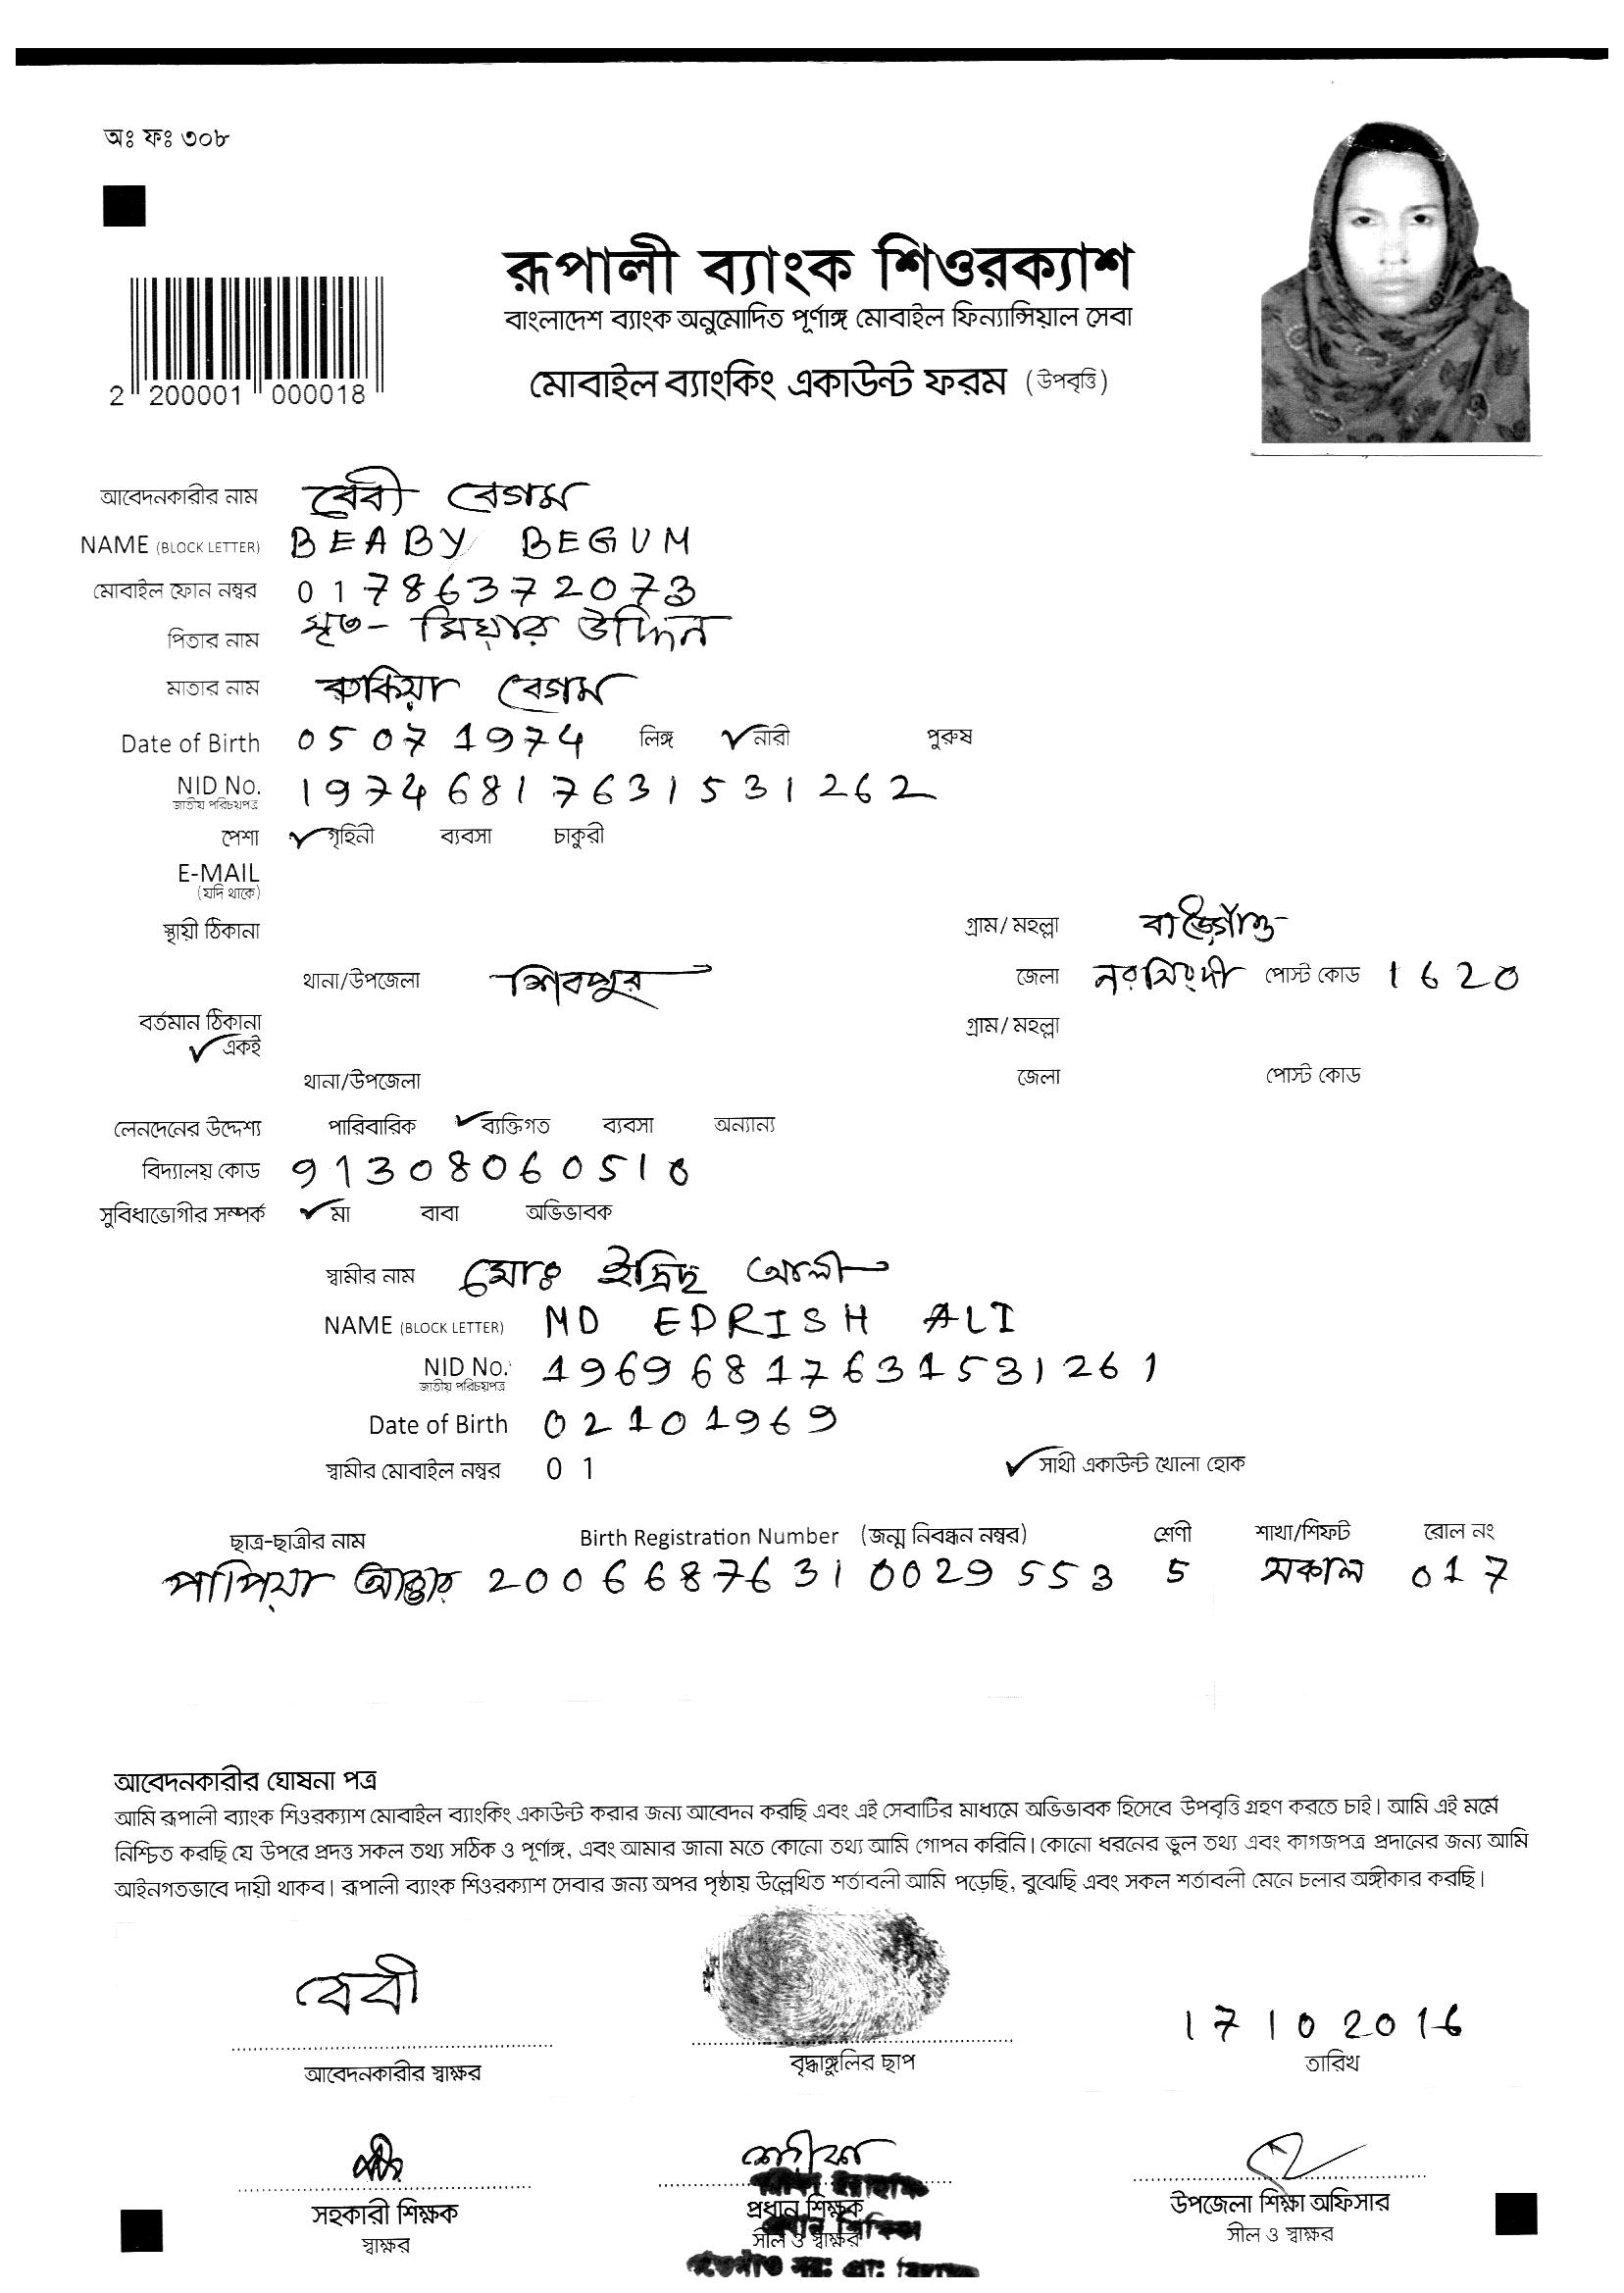 অঃ ফঃ ৩০৮
রূপালী ব্যাংক শিওরক্যাশ
বাংলাদেশ ব্যাংক অনুমোদিত পূর্ণাঙ্গ মোবাইল ফিন্যান্সিয়াল সেবা
মোবাইল ব্যাংকিং একাউন্ট ফরম (উপবৃত্তি)
2 200001 000018
আবেদনকারীর নাম বেবী বেগম
NAME (BLOCK LETTER) BEABY BEGUM
মোবাইল ফোন নম্বর 01786372073
পিতার নাম মৃত- মিয়ার উদ্দিন
মাতার নাম রুকিয়া বেগম
Date of Birth 05 07 1974 লিঙ্গ ✓ নারী পুরুষ
NID No. 19746817631531262
জাতীয় পরিচয়পত্র
পেশা ✓ গৃহিনী ব্যবসা চাকুরী
E-MAIL
(যদি থাকে)
স্থায়ী ঠিকানা গ্রাম/ মহল্লা
থানা/উপজেলা শিবপুর জেলা নরসিংদী পোস্ট কোড 1620
বর্তমান ঠিকানা গ্রাম/ মহল্লা
✓ একই
থানা/উপজেলা জেলা পোস্ট কোড
লেনদেনের উদ্দেশ্য পারিবারিক ✓ ব্যক্তিগত ব্যবসা অন্যান্য
বিদ্যালয় কোড 91308060510
সুবিধাভোগীর সম্পর্ক ✓ মা বাবা অভিভাবক
স্বামীর নাম মোঃ ইদ্রিছ আলী
NAME (BLOCK LETTER) MD EDRISH ALI
NID No. 19696817631531261
জাতীয় পরিচয়পত্র
Date of Birth 02101969
স্বামীর মোবাইল নম্বর 01 ✓ সাথী একাউন্ট খোলা হোক
ছাত্র-ছাত্রীর নাম Birth Registration Number (জন্ম নিবন্ধন নম্বর) শ্রেণী শাখা/শিফট রোল নং
পাপিয়া আক্তার 20066876310029553 5 সকাল 017
আবেদনকারীর ঘোষনা পত্র
আমি রূপালী ব্যাংক শিওরক্যাশ মোবাইল ব্যাংকিং একাউন্ট করার জন্য আবেদন করছি এবং এই সেবাটির মাধ্যমে অভিভাবক হিসেবে উপবৃত্তি গ্রহণ করতে চাই। আমি এই মর্মে
নিশ্চিত করছি যে উপরে প্রদত্ত সকল তথ্য সঠিক ও পূর্ণাঙ্গ, এবং আমার জানা মতে কোনো তথ্য আমি গোপন করিনি। কোনো ধরনের ভুল তথ্য এবং কাগজপত্র প্রদানের জন্য আমি
আইনগতভাবে দায়ী থাকব। রূপালী ব্যাংক শিওরক্যাশ সেবার জন্য অপর পৃষ্ঠায় উল্লেখিত শর্তাবলী আমি পড়েছি, বুঝেছি এবং সকল শর্তাবলী মেনে চলার অঙ্গীকার করছি।
বেবী 17 10 2016
আবেদনকারীর স্বাক্ষর বৃদ্ধাঙ্গুলির ছাপ তারিখ
সহকারী শিক্ষক প্রধান শিক্ষক উপজেলা শিক্ষা অফিসার
স্বাক্ষর সীল ও স্বাক্ষর সীল ও স্বাক্ষর